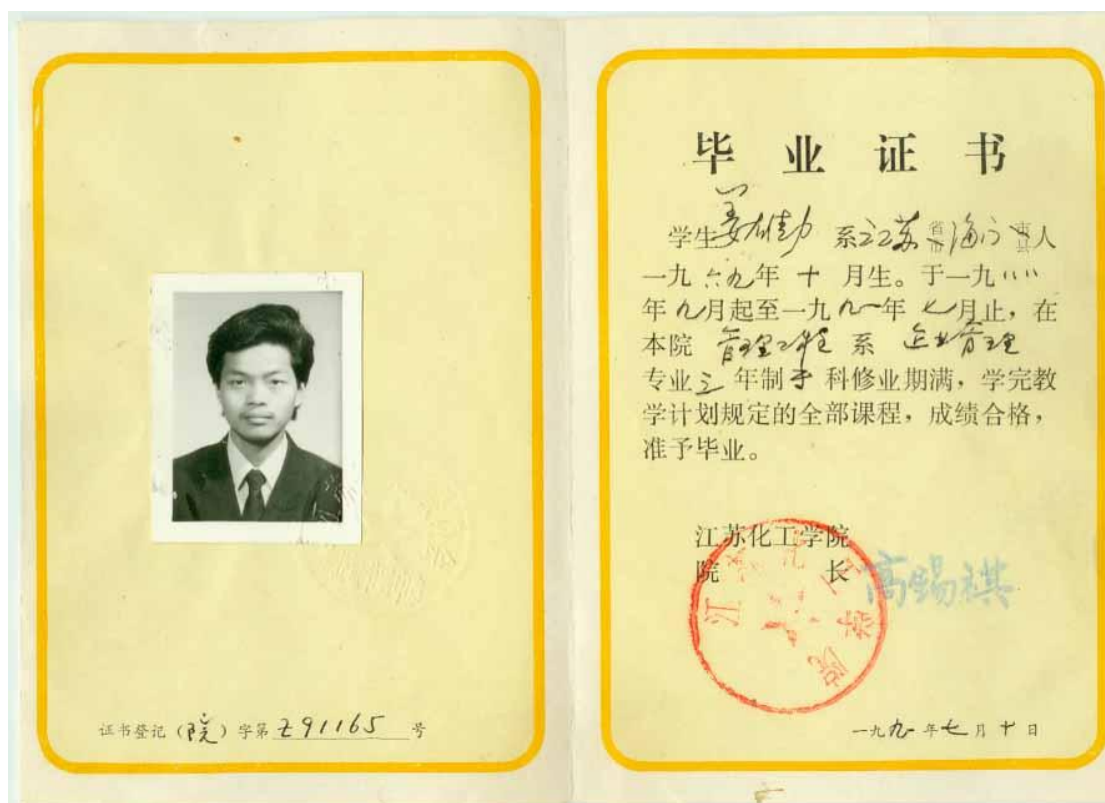 证书登记（院）字第 Z91165 号
毕业证书
学生姜雄劲 系江苏省市海门市县人
一九六九年十月生。于一九八八
年九月起至一九九一年七月止，在
本院 管理工程 系 企业管理
专业三年制专科修业期满，学完教
学计划规定的全部课程，成绩合格，
准予毕业。
江苏化工学院
院长 高锡祺
一九九一年七月十日